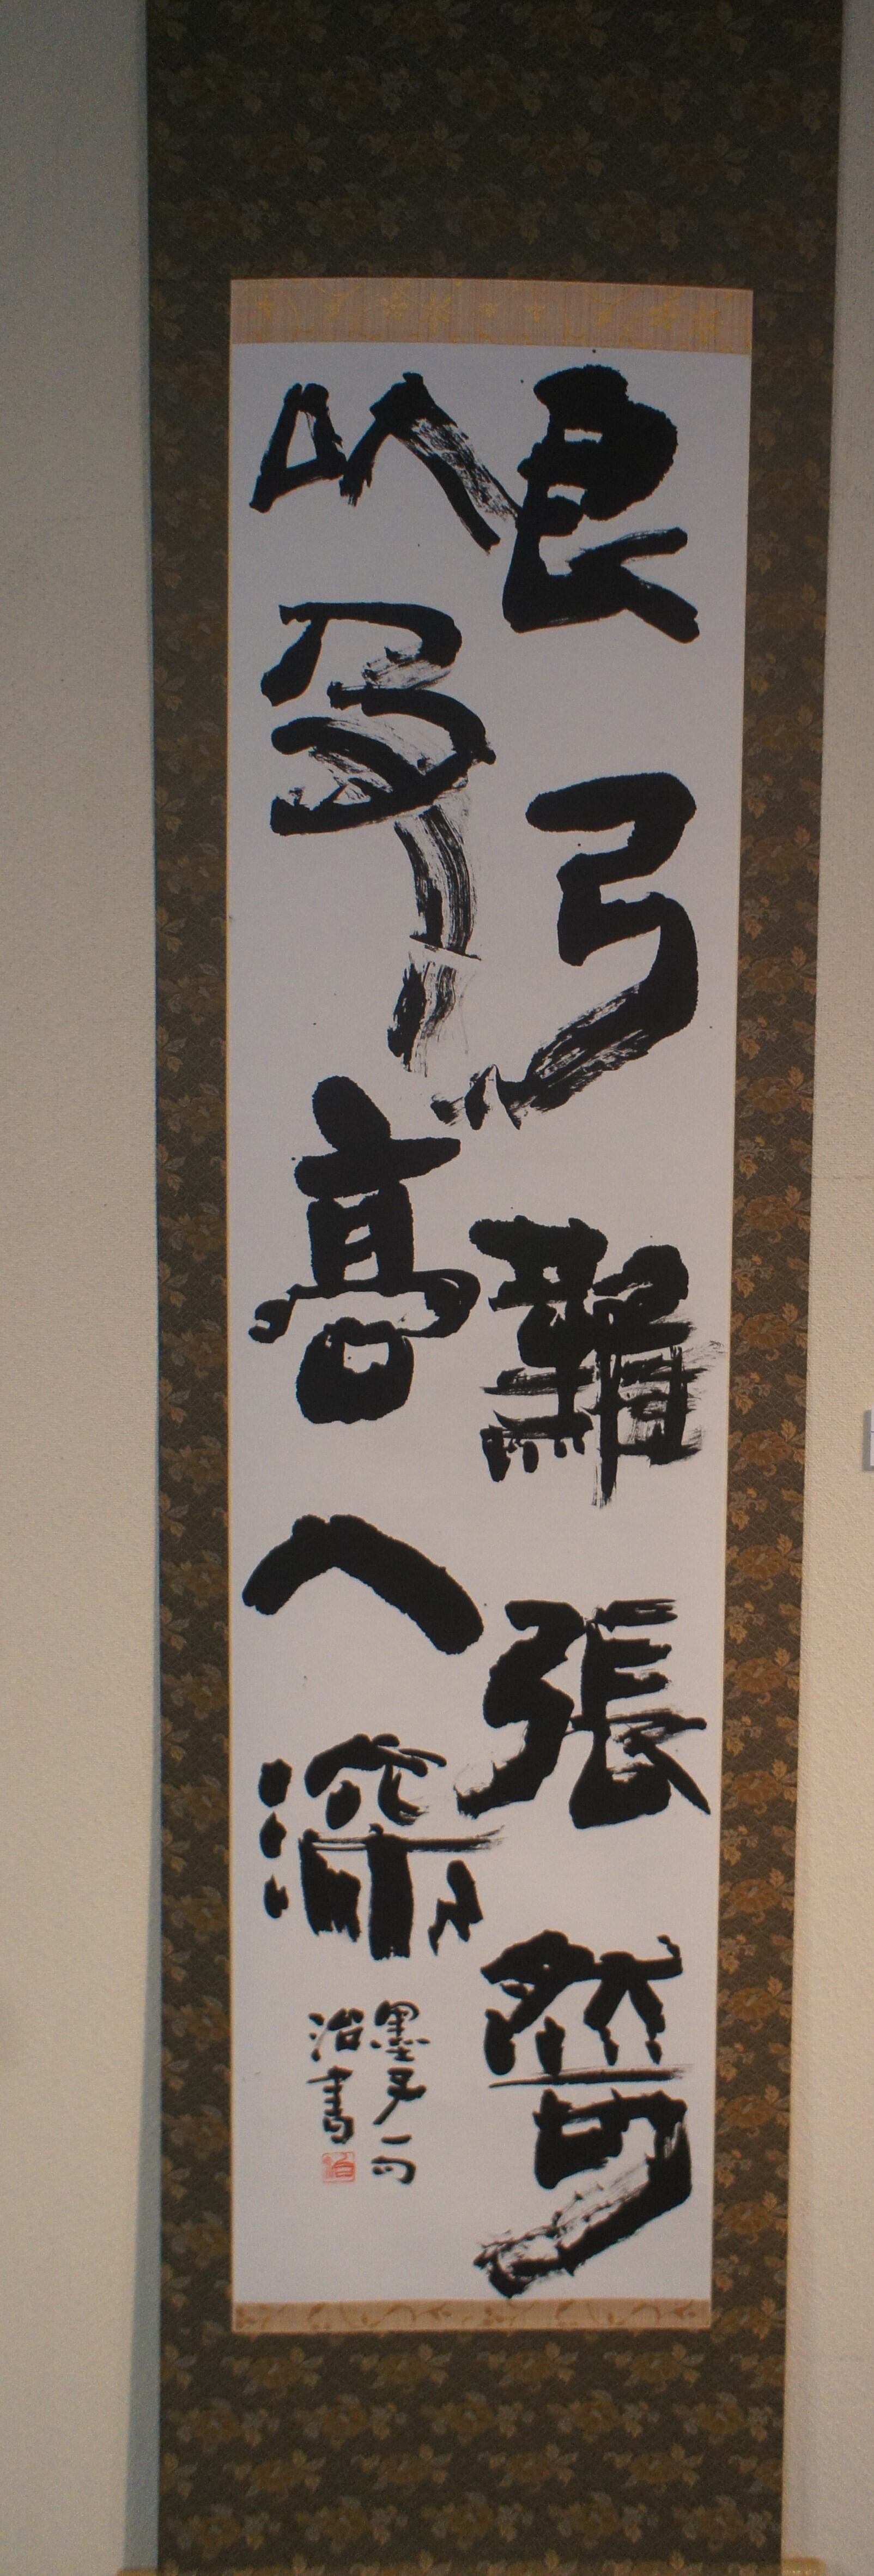 良弓難張然可
以及高入深
墨子一句
治書